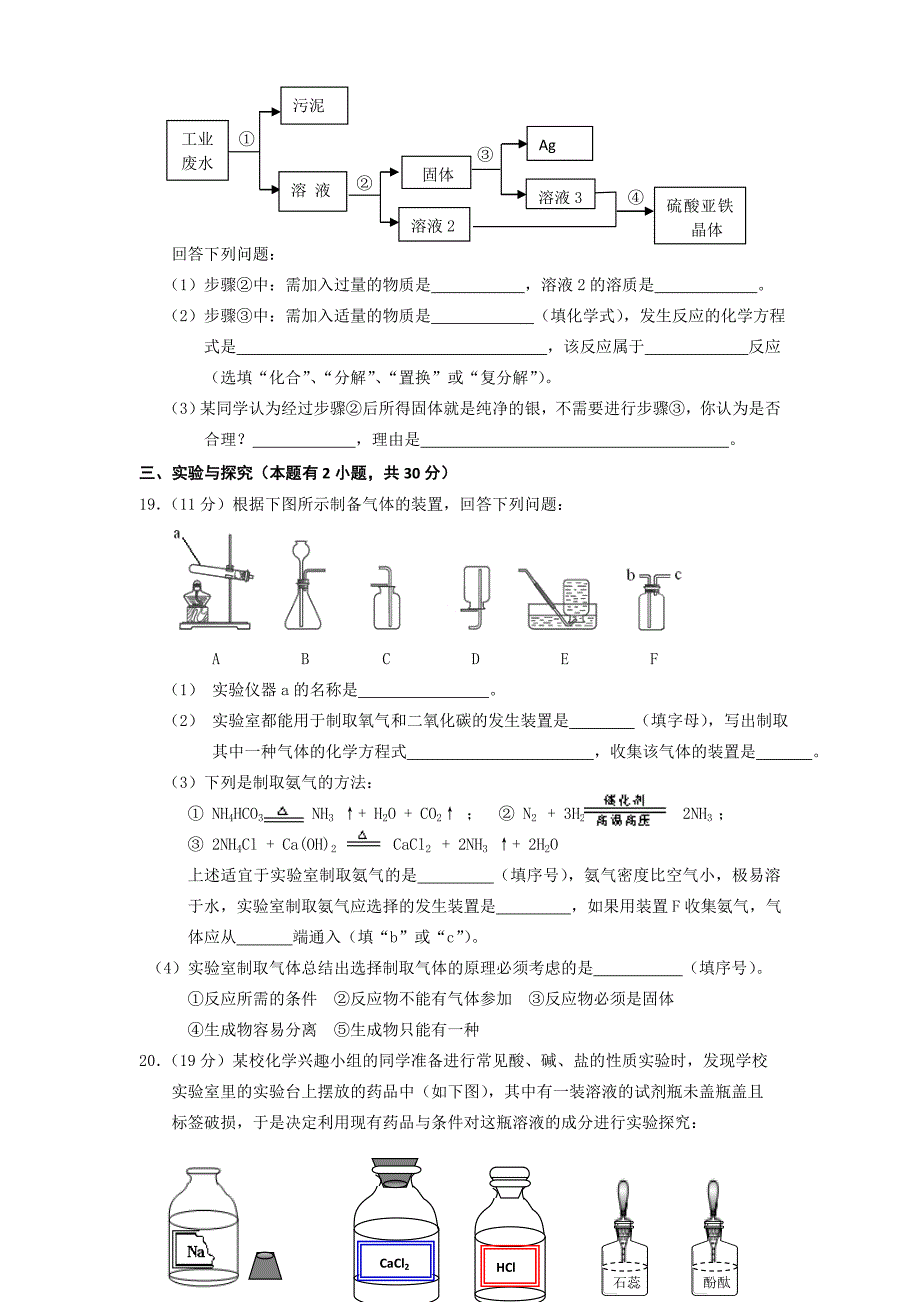 污泥
工业
废水
①
溶 液
②
固体
③
Ag
溶液 3
溶液 2
④
硫酸亚铁
晶体
回答下列问题：
（1）步骤②中：需加入过量的物质是____________，溶液 2 的溶质是____________。
（2）步骤③中：需加入适量的物质是____________（填化学式），发生反应的化学方程
式是____________________________________，该反应属于____________反应
（选填“化合”、“分解”、“置换”或“复分解”）。
（3）某同学认为经过步骤②后所得固体就是纯净的银，不需要进行步骤③，你认为是否
合理？____________，理由是____________________________________。
三、实验与探究（本题有 2 小题，共 30 分）
19．（11 分）根据下图所示制备气体的装置，回答下列问题：
a
b c
A B C D E F
（1） 实验仪器 a 的名称是________________。
（2） 实验室都能用于制取氧气和二氧化碳的发生装置是________（填字母），写出制取
其中一种气体的化学方程式______________________，收集该气体的装置是_______。
（3）下列是制取氨气的方法：
① NH₄HCO₃ =△= NH₃ ↑+ H₂O + CO₂↑ ； ② N₂ + 3H₂ =催化剂 高温高压= 2NH₃；
③ 2NH₄Cl + Ca(OH)₂ =△= CaCl₂ + 2NH₃ ↑+ 2H₂O
上述适宜于实验室制取氨气的是_________（填序号），氨气密度比空气小，极易溶
于水，实验室制取氨气应选择的发生装置是_________，如果用装置 F 收集氨气，气
体应从_______端通入（填“b”或“c”）。
（4）实验室制取气体总结出选择制取气体的原理必须考虑的是___________（填序号）。
①反应所需的条件 ②反应物不能有气体参加 ③反应物必须是固体
④生成物容易分离 ⑤生成物只能有一种
20．（19 分）某校化学兴趣小组的同学准备进行常见酸、碱、盐的性质实验时，发现学校
实验室里的实验台上摆放的药品中（如下图），其中有一装溶液的试剂瓶未盖瓶盖且
标签破损，于是决定利用现有药品与条件对这瓶溶液的成分进行实验探究：
Na
CaCl₂
HCl
石蕊
酚酞